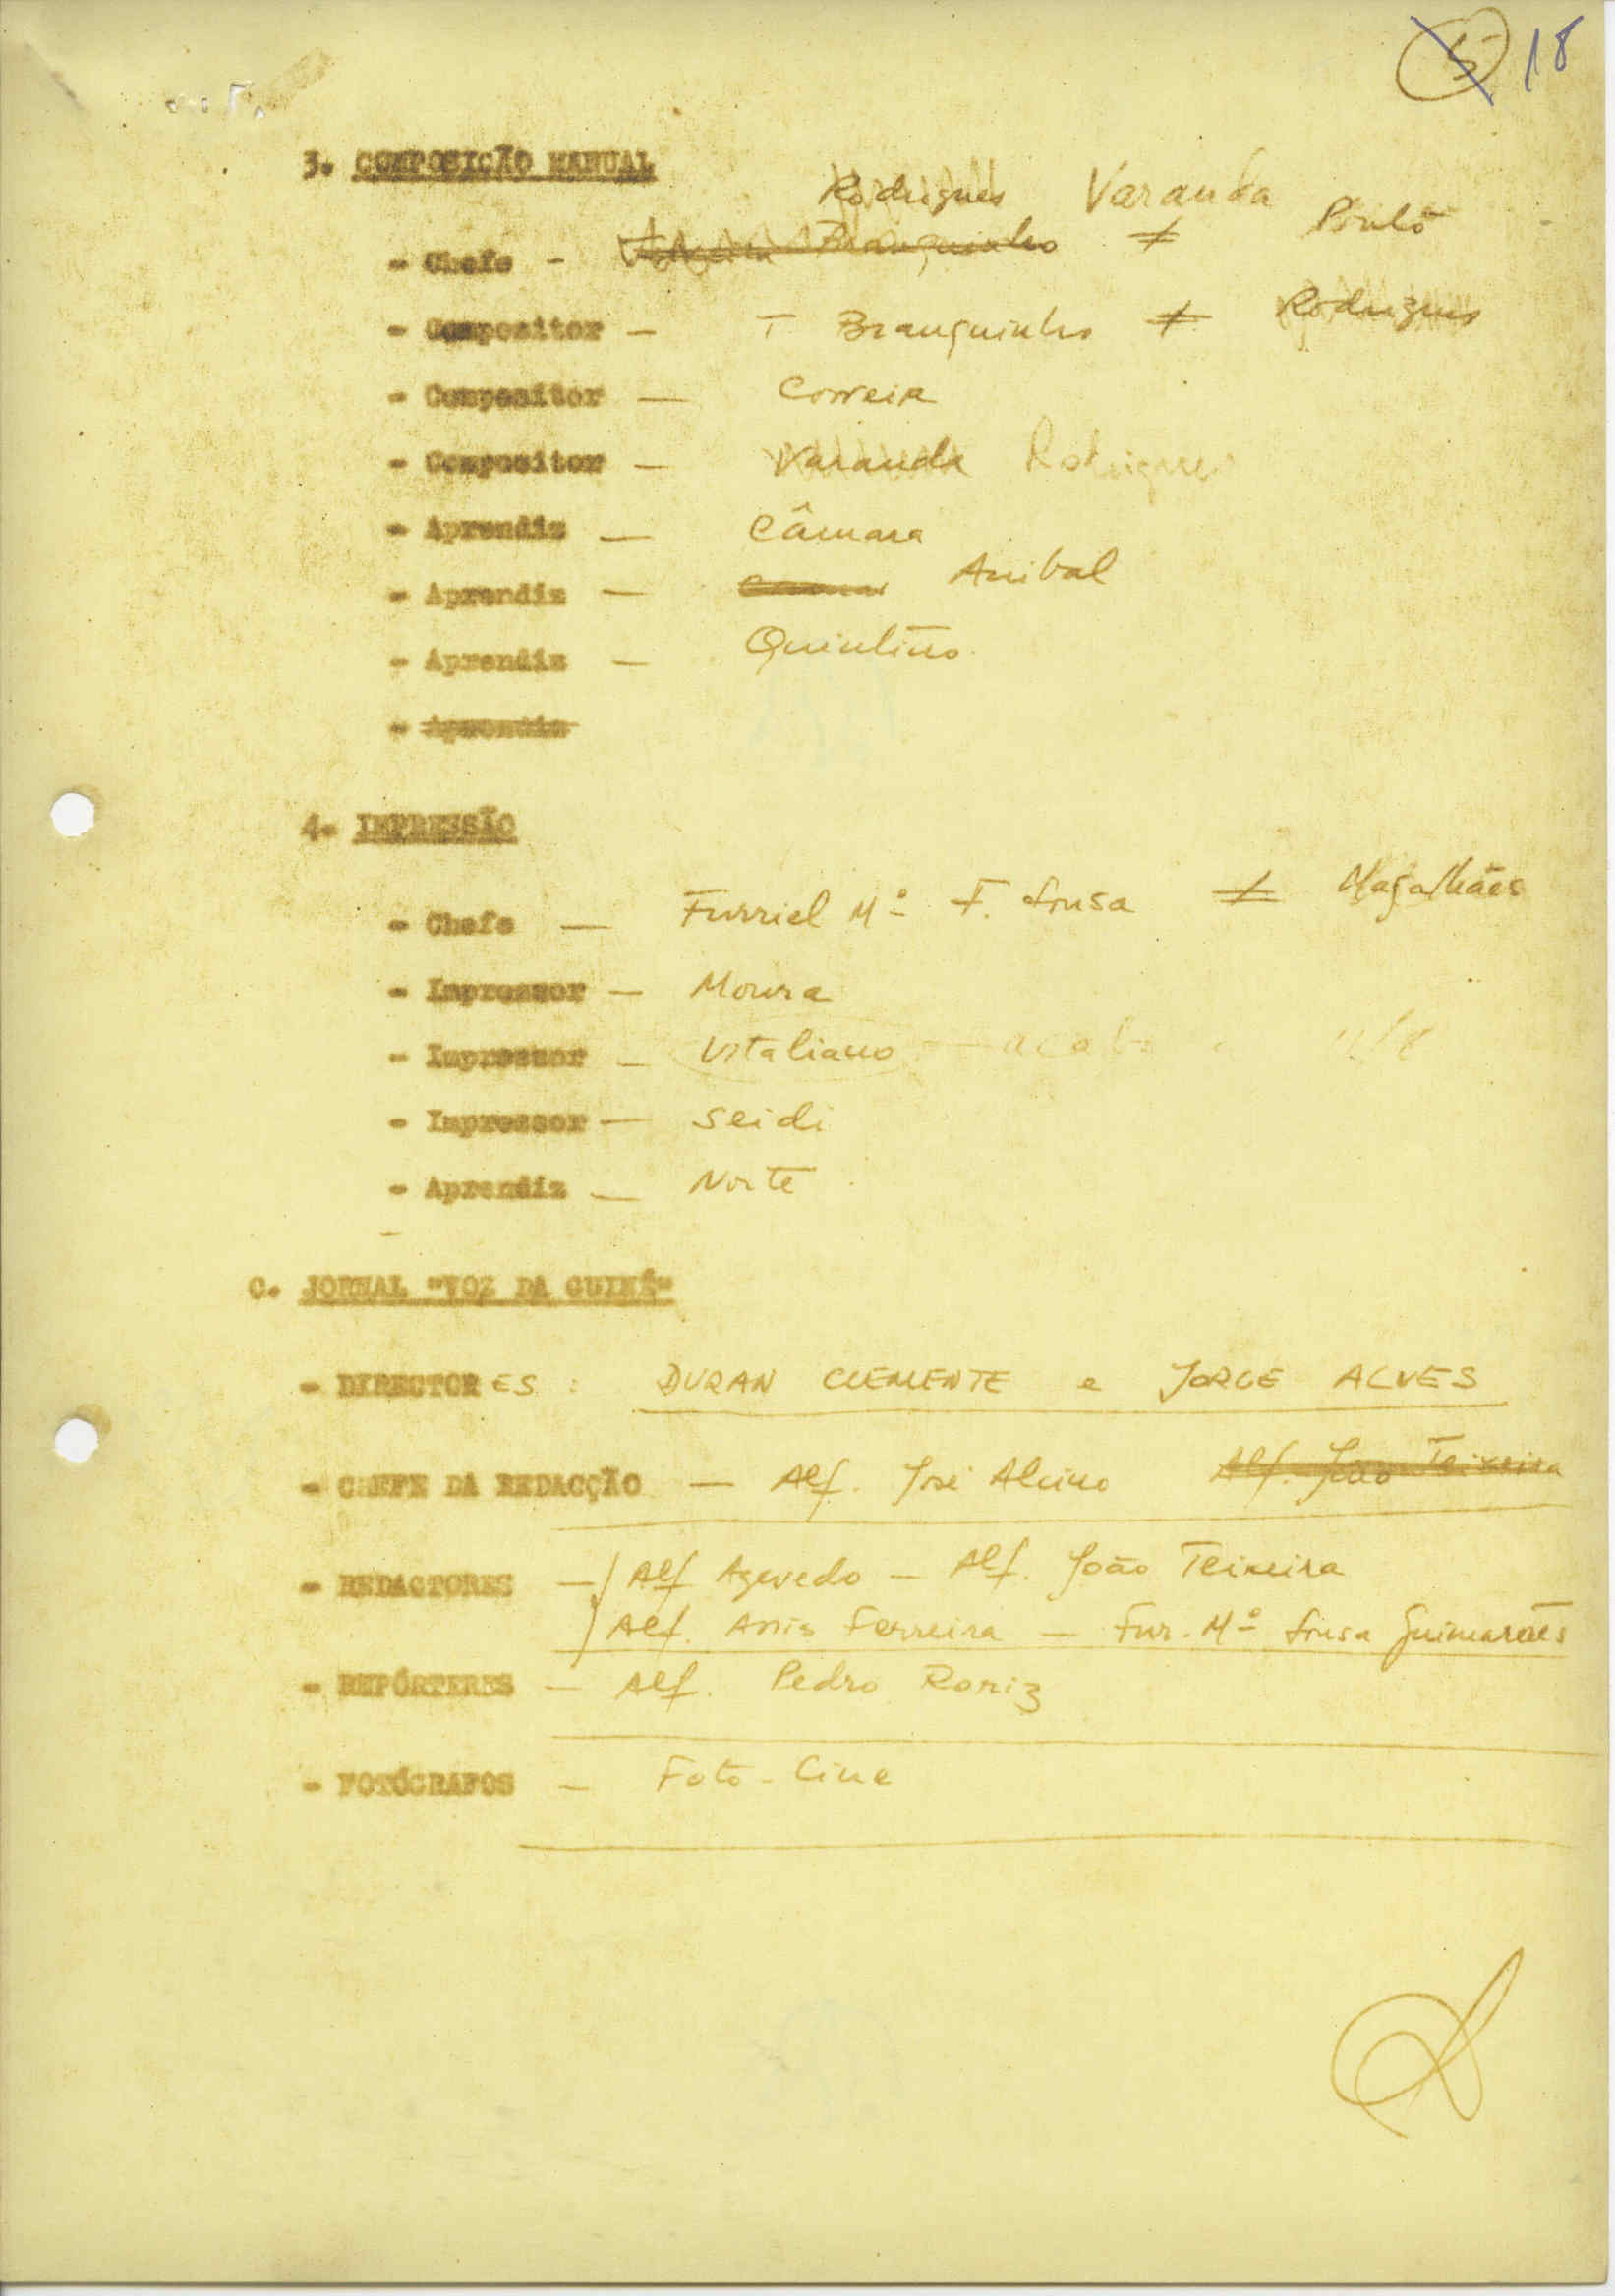 5 18
3. COMPOSIÇÃO MANUAL
Rodrigues Varanda
- Chefe - Branquinho ≠
- Compositor — T Branquinho ≠ Rodrigues
- Compositor — Correia
- Compositor — Varanda Rodrigues
- Aprendiz — Câmara
- Aprendiz — Anibal
- Aprendiz — Quintino
- Aprendiz
4. IMPRESSÃO
- Chefe — Furriel Mº F. Sousa ≠ Magalhães
- Impressor — Moura
- Impressor — Vitaliano
- Impressor — Seidi
- Aprendiz — Norte
C. JORNAL "VOZ DA GUINÉ"
- DIRECTORES : DURAN CLEMENTE e JORGE ALVES
- CHEFE DA REDACÇÃO — Alf. José Alcino Alf. João Teixeira
- REDACTORES — Alf Azevedo — Alf. João Teixeira
Alf. Ferreira — Fur. Mº Sousa Guimarães
- REPÓRTERES — Alf. Pedro Roriz
- FOTÓGRAFOS — Foto-Cine